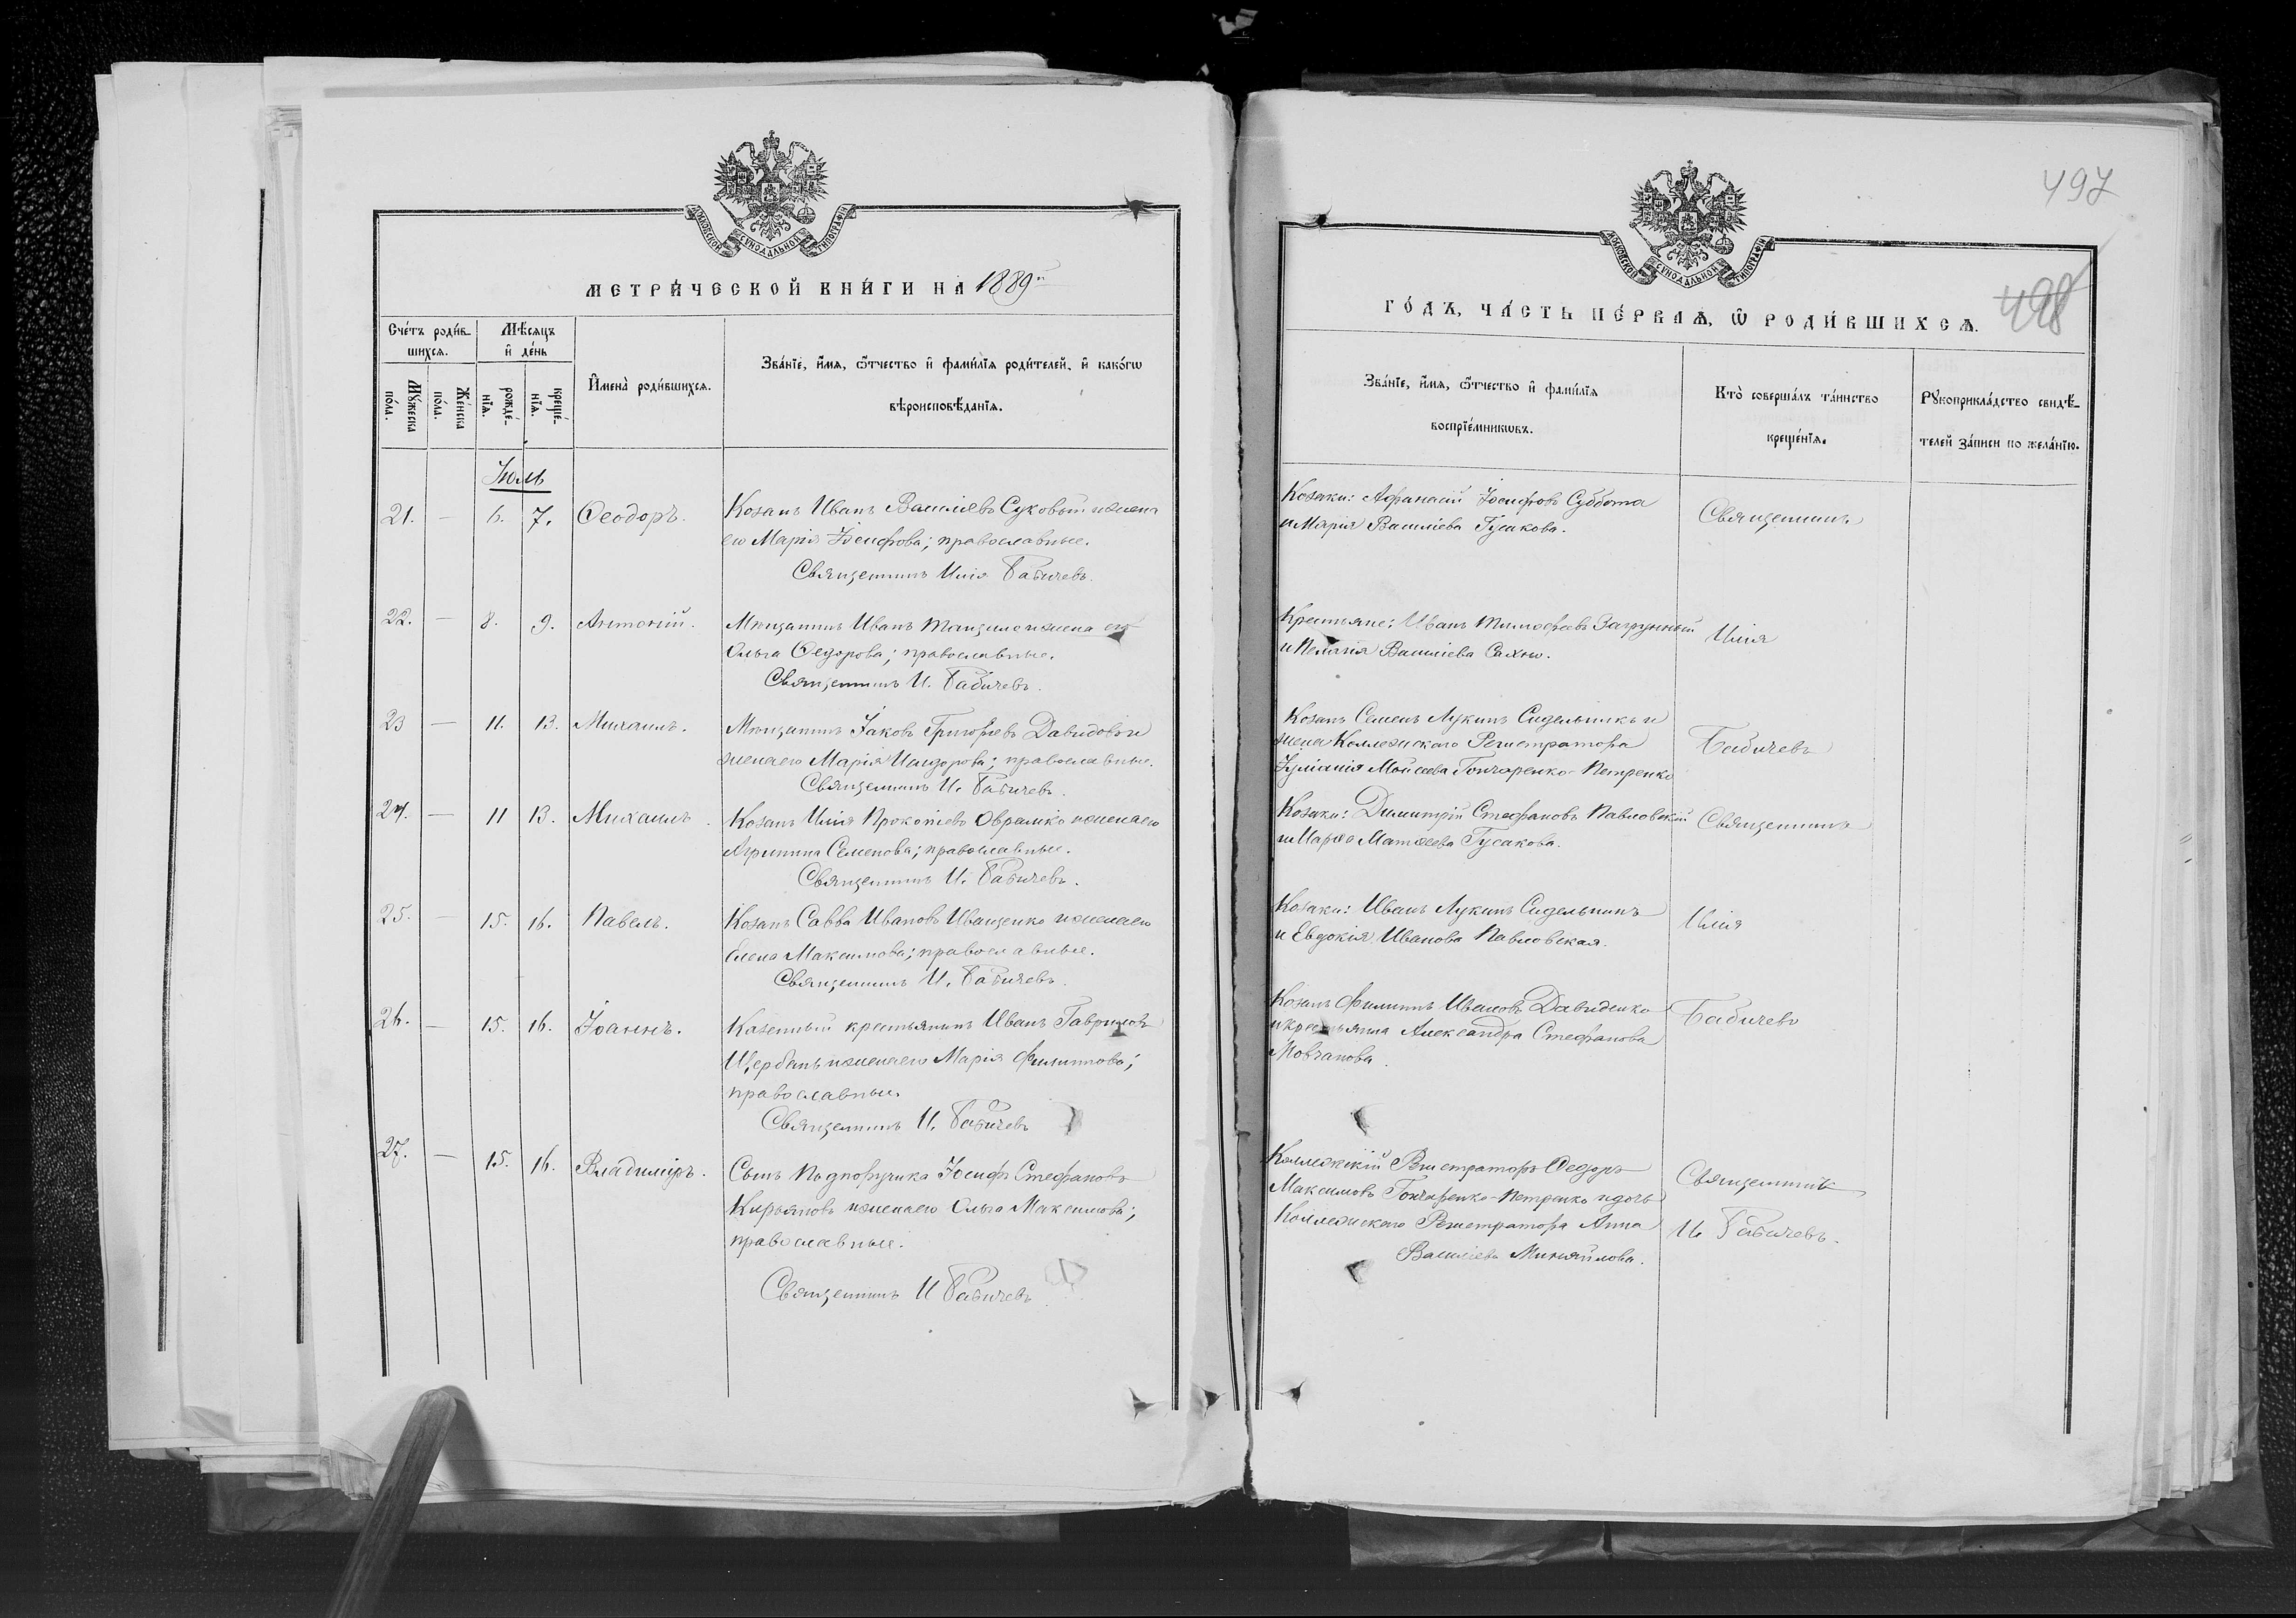 МОСКОВСКОЙ СѴНОДАЛЬНОЙ ТИПОГРАФІИ
МЕТРИ́ЧЕСКОЙ КНИ́ГИ НА 1889й
Сче́тъ роди́в-
шихсѧ.
Мѣ́сѧцъ
и҆ де́нь
Мꙋ́жеска
по́ла.
Же́нска
по́ла.
рожде́-
нїѧ.
креще́-
нїѧ.
И҆мена̀ роди́вшихсѧ.
Зва́нїе, и҆́мѧ, ѻ҆́тчество и҆ фами́лїѧ роди́телей, и҆ како́гѡ
вѣроисповѣ́данїѧ.
Іюль
21. — 6. 7. Ѳеодоръ.
Козакъ Иванъ Василіевъ Суковый и жена
его Марія Іосифова; православные.
Священникъ Илія Бабичевъ.
22. — 8. 9. Антоній.
Мѣщанинъ Иванъ и жена его
Ольга Ѳедорова; православные.
Священникъ И. Бабичевъ.
23 — 11. 13. Михаилъ.
Мѣщанинъ Іаковъ Григоріевъ Давидовъ и
жена его Марія Исидорова; православные.
Священникъ И. Бабичевъ.
24. — 11 13. Михаилъ.
Козакъ Илія Прокопіевъ Аврамко и жена его
Агрипина Семенова; православные.
Священникъ И. Бабичевъ.
25. — 15. 16. Павелъ.
Козакъ Савва Ивановъ Иващенко и жена его
Елена Максимова; православные.
Священникъ И. Бабичевъ.
26. — 15. 16. Іоаннъ.
Казенный крестьянинъ Иванъ Гавриловъ
Щербань и жена его Марія Филиппова;
православные.
Священникъ И. Бабичевъ
27. — 15. 16. Владиміръ.
Сынъ Подпоручика Іосифъ Стефановъ
Кирьяновъ и жена его Ольга Максимова;
православные.
Священникъ И Бабичевъ
497
498
МОСКОВСКОЙ СѴНОДАЛЬНОЙ ТИПОГРАФІИ
ГО́ДЪ, ЧА́СТЬ ПЕ́РВАѦ, Ѡ҆ РОДИ́ВШИХСѦ.
Зва́нїе, и҆́мѧ, ѻ҆́тчество и҆ фами́лїѧ
воспрїе́мникѡвъ.
Кто̀ соверша́лъ та́инство
креще́нїѧ.
Рꙋкоприкла́дство свидѣ́-
телей за́писи по жела́нїю.
Козаки: Афанасій Іосифовъ Суббота
и Марія Василіева Гусакова.
Священникъ
Крестьяне: Иванъ Тимофеевъ Загрунный
и Пелагія Василіева Сахно.
Илія
Козакъ Семенъ Лукинъ Сидельникъ и
жена Коллежскаго Регистратора
Іуліанія Моисеева Гончаренко-Петренко
Бабичевъ
Козаки: Димитрій Стефановъ Павловскій
и Марѳа Матѳеева Гусакова.
Священникъ
Козаки: Иванъ Лукинъ Сидельникъ
и Евдокія Иванова Павловская.
Илія
Козакъ Филиппъ Ивановъ Давиденко
и крестьянка Александра Стефанова
Мовчанова.
Бабичевъ
Коллежскій Регистраторъ Ѳедоръ
Максимовъ Гончаренко-Петренко и дочь
Коллежскаго Регистратора Анна
Василіева Миняйлова.
Священникъ
И. Бабичевъ.